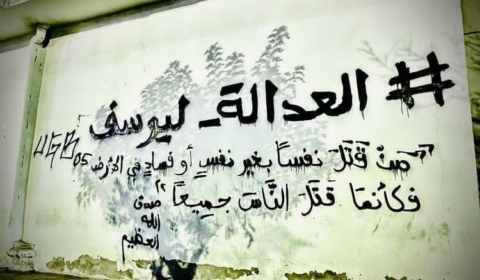 #العدالة_ليوسف
"مَنْ قَتَلَ نفساً بغير نفسٍ أو فسادٍ في الأرض
فكأنما قتل النَّاسَ جميعاً"
صدق
الله
العظيم
UGB 05